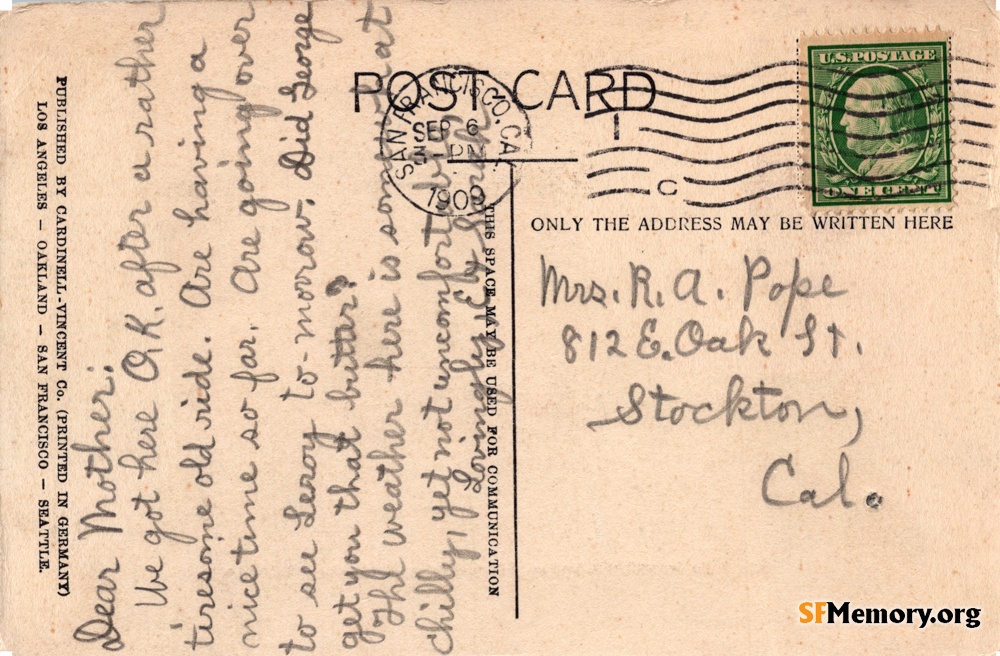 PUBLISHED BY CARDINELL-VINCENT Co. (PRINTED IN GERMANY)
LOS ANGELES – OAKLAND – SAN FRANCISCO – SEATTLE.
POST CARD
SAN FRANCISCO, CAL.
SEP 6
PM
1909
1
C
U.S. POSTAGE
ONE CENT
THIS SPACE MAY BE USED FOR COMMUNICATION
ONLY THE ADDRESS MAY BE WRITTEN HERE
Dear Mother:
We got here O.K. after a rather
tiresome old ride. Are having a
nice time so far. Are going over
to see Leroy to-morrow. Did George
get you that butter?
The weather here is somewhat
chilly, yet not uncomfortably
Lovingly,
Mrs. R. A. Pope
812 E. Oak St.
Stockton,
Cal.
SFMemory.org